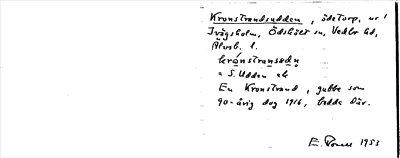 Kronstrandsudden, ödetorp, nr 1
Ivägsholm, Ödskölt sn, Vedbo hd,
Älvsb. l.
krónstransødn
= S. Udden ek
En Kronstrand, gubbe som
90-årig dog 1916, bodde där.
E. 1953